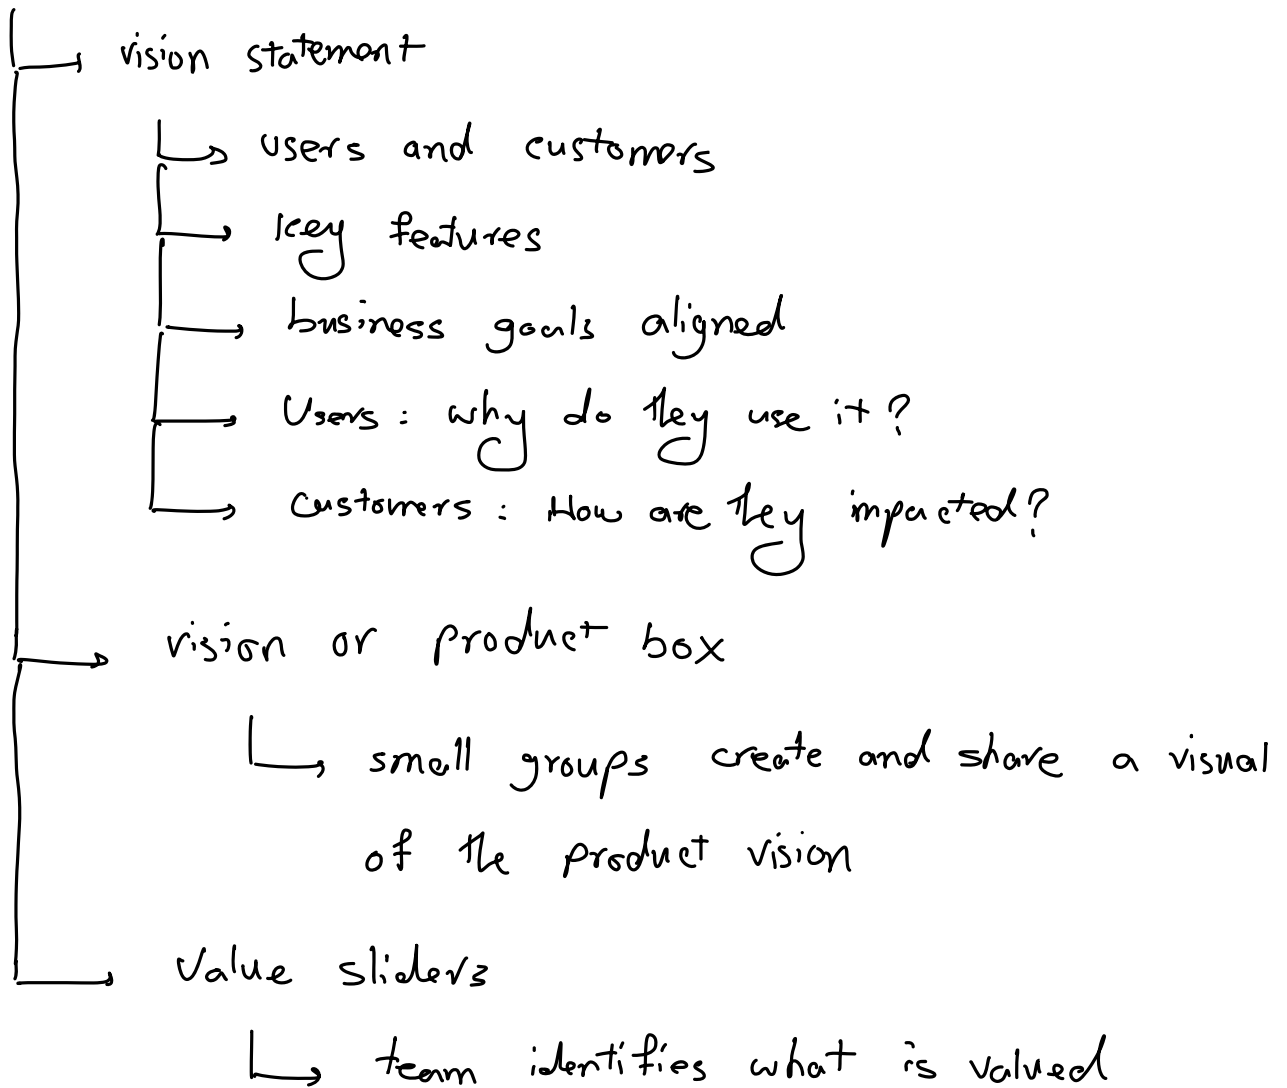 vision statement
users and customers
key features
business goals aligned
Users : why do they use it ?
Customers : How are they impacted ?
vision or product box
small groups create and share a visual
of the product vision
Value sliders
team identifies what is valued